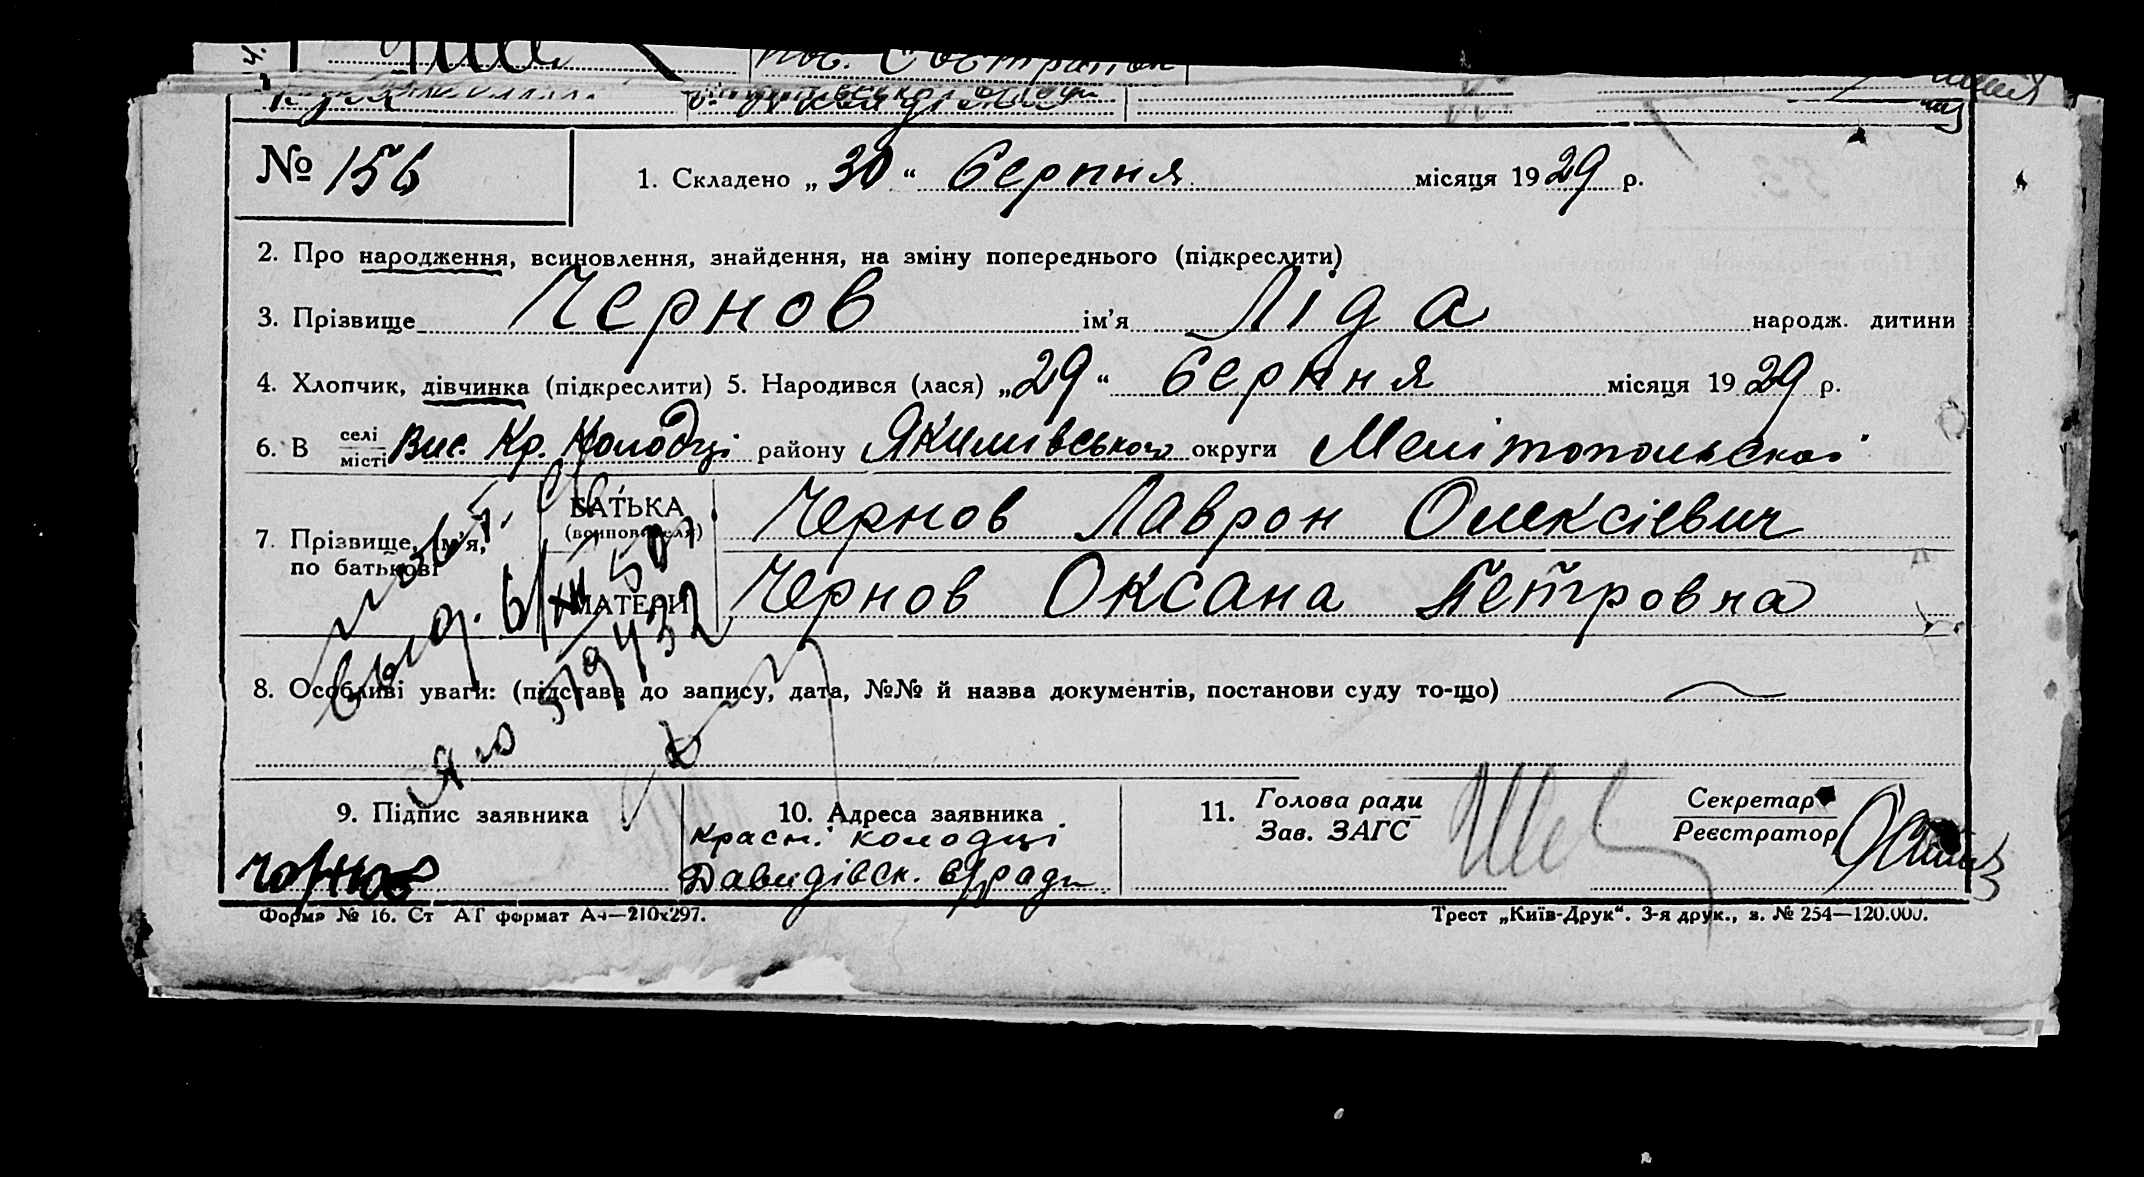 № 156
1. Складено „ 30 “ Серпня місяця 1929 р.
2. Про народження, всиновлення, знайдення, на зміну попереднього (підкреслити)
3. Прізвище Чернов ім’я Ліда народж. дитини
4. Хлопчик, дівчинка (підкреслити) 5. Народився (лася) „29“ Серпня місяця 1929 р.
6. В селі місті Вис. Кр. Колодці району Якимівського округи Мелітопольскої
7. Прізвище, ім’я, по батькові
БАТЬКА (всиновителя) Чернов Лаврон Олексієвич
МАТЕРИ Чернов Оксана Петровна
выд. 6/XII 50
519432
8. Особливі уваги: (підстава до запису, дата, №№ й назва документів, постанови суду то-що)
9. Підпис заявника
10. Адреса заявника
Красн. колодці
Давидівск. с/ради
11. Голова ради
Зав. ЗАГС
Секретар
Реєстратор
Форма № 16. Ст АГ формат А4—210х297.
Трест „Київ-Друк“. 3-я друк., з. № 254—120.000.